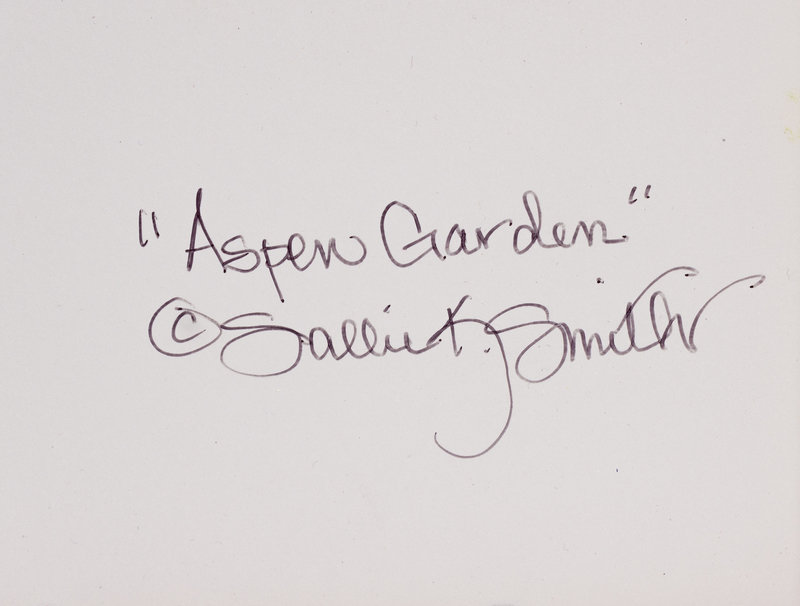 "Aspen Garden"
© Sallie K. Smith